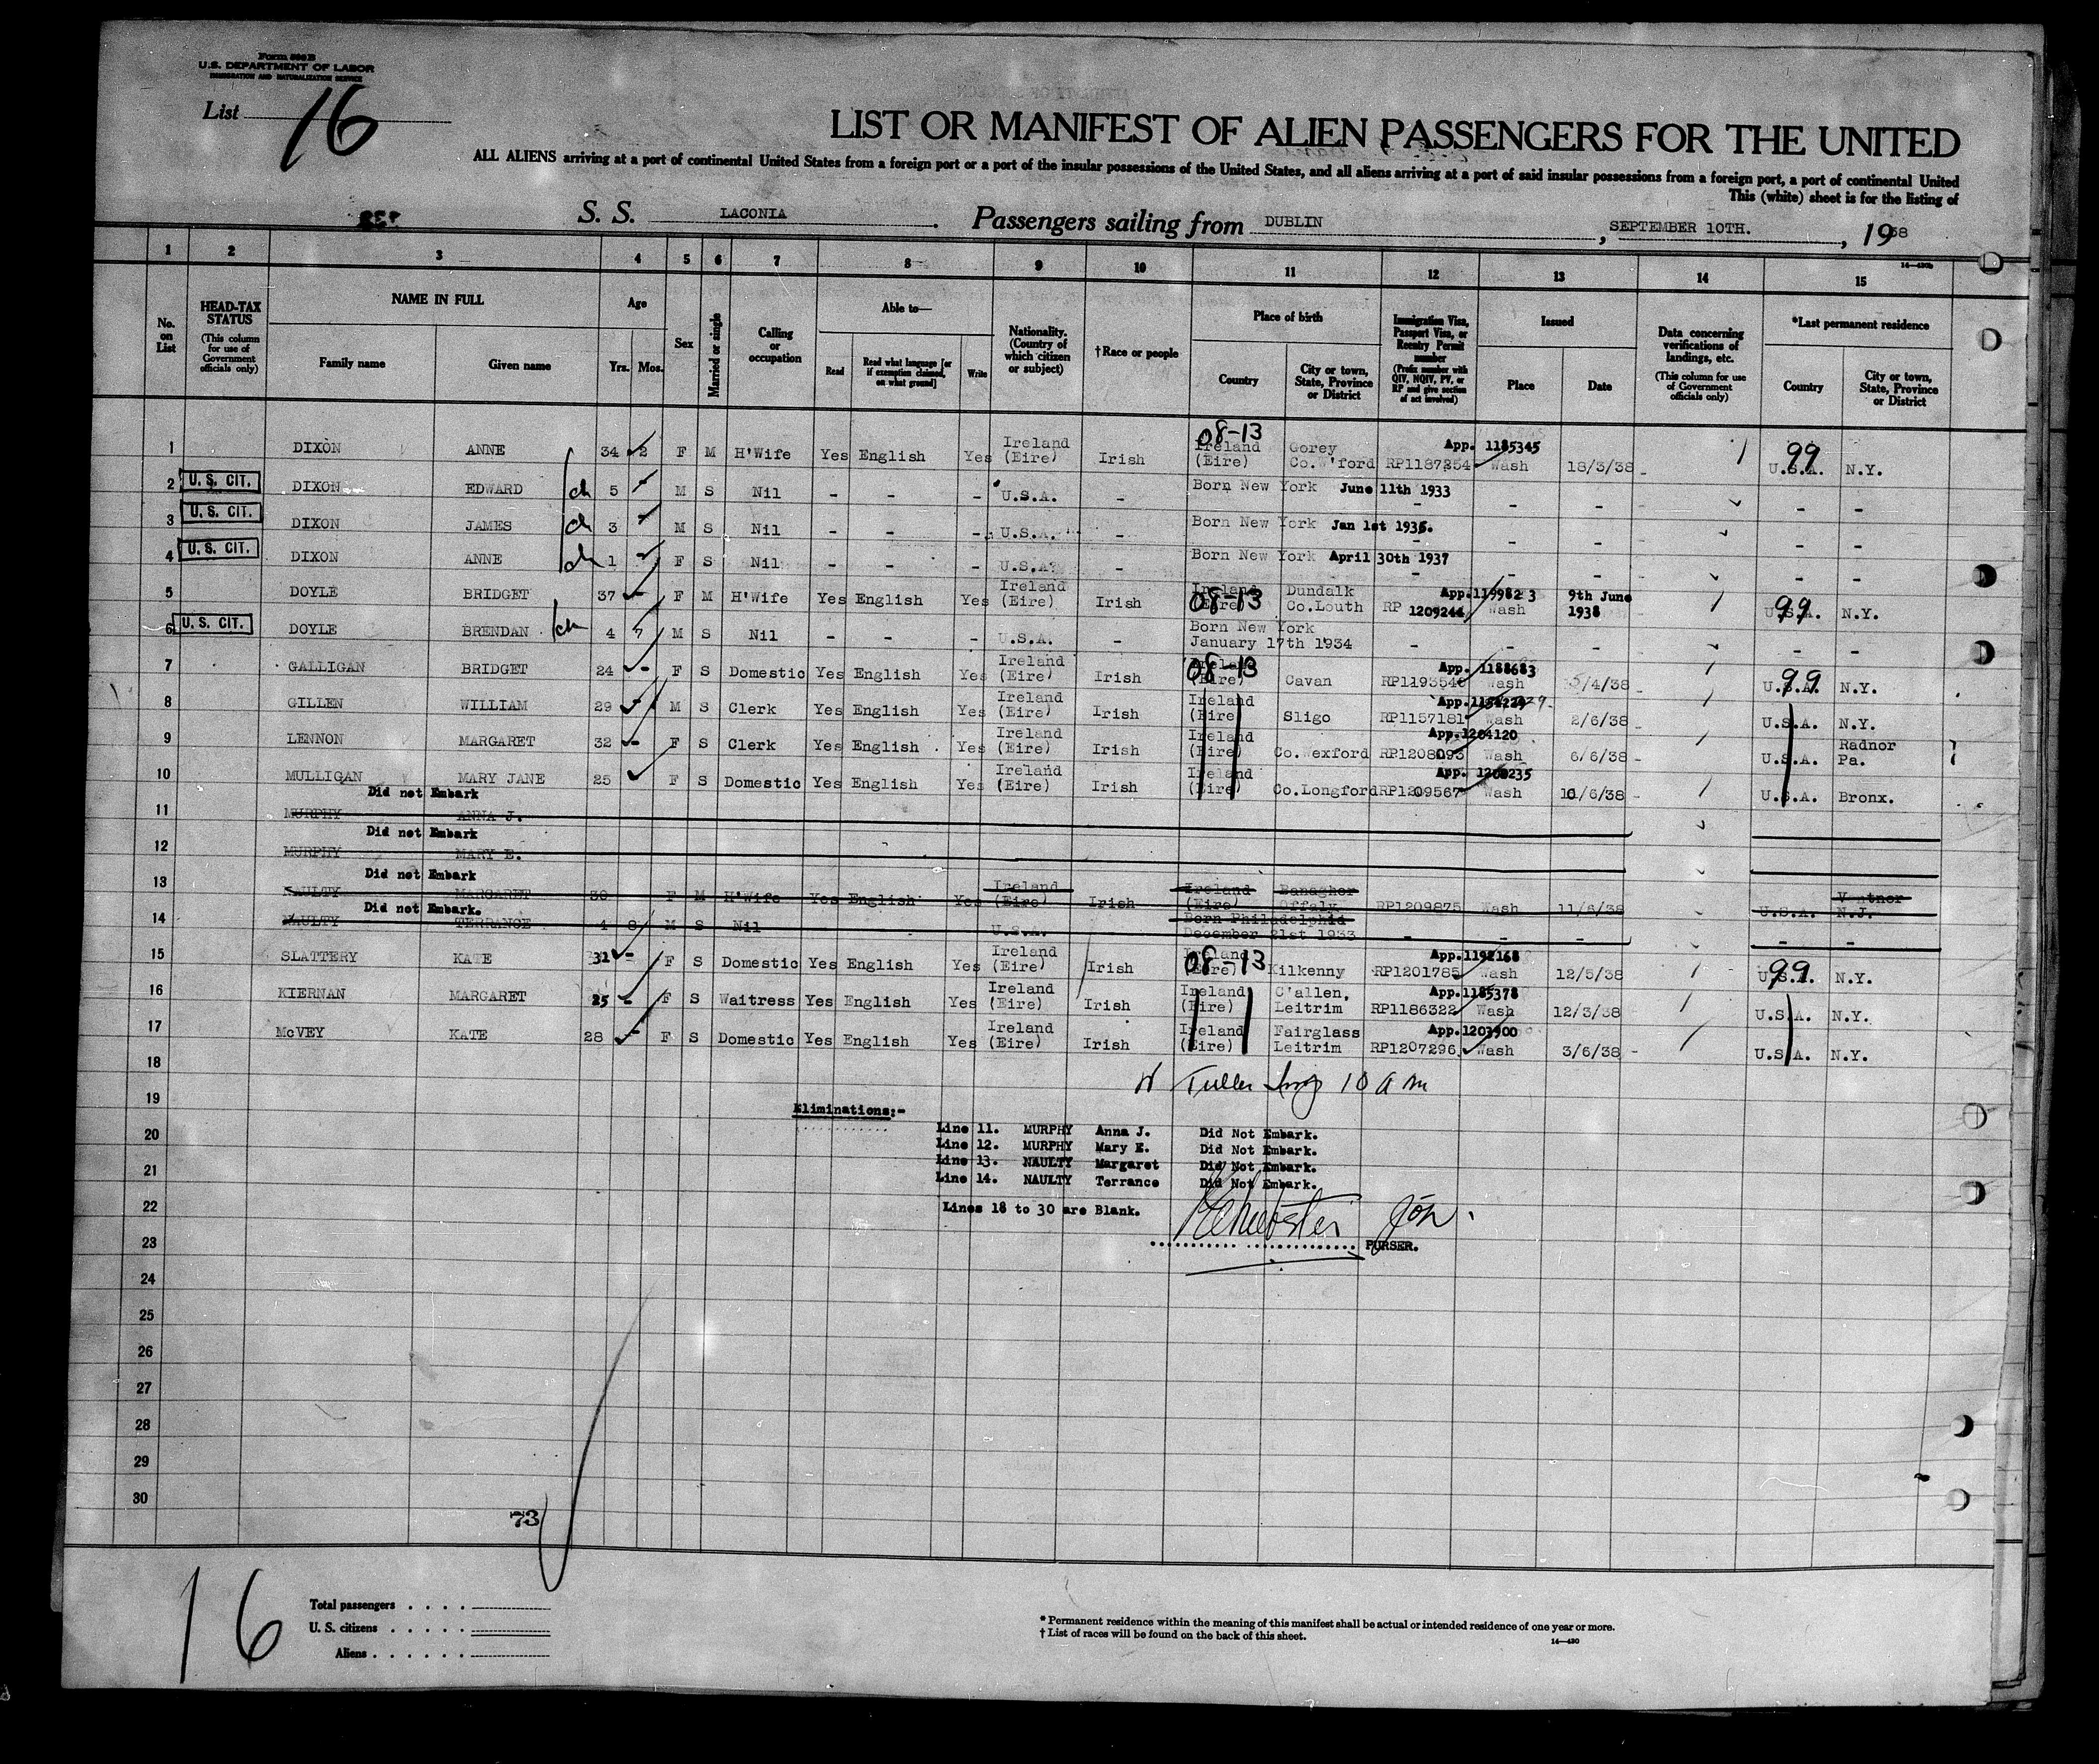 Form 500 B
U. S. DEPARTMENT OF LABOR
IMMIGRATION AND NATURALIZATION SERVICE
List 16
LIST OR MANIFEST OF ALIEN PASSENGERS FOR THE UNITED
ALL ALIENS arriving at a port of continental United States from a foreign port or a port of the insular possessions of the United States, and all aliens arriving at a port of said insular possessions from a foreign port, a port of continental United
This (white) sheet is for the listing of
S. S. LACONIA Passengers sailing from DUBLIN, SEPTEMBER 10TH., 1938
1 2 3 4 5 6 7 8 9 10 11 12 13 14 15
No. on List
HEAD-TAX STATUS (This column for use of Government officials only)
NAME IN FULL Family name Given name
Age Yrs. Mos.
Sex
Married or single
Calling or occupation
Able to— Read Read what language [or if exemption claimed, on what ground] Write
Nationality. (Country of which citizen or subject)
†Race or people
Place of birth Country City or town, State, Province or District
Immigration Visa, Passport Visa, or Reentry Permit number (Prefix number with QIV, NQIV, PV, or RP and give section of act involved)
Issued Place Date
Data concerning verifications of landings, etc. (This column for use of Government officials only)
*Last permanent residence Country City or town, State, Province or District
1 DIXON ANNE 34 2 F M H'Wife Yes English Yes Ireland (Eire) Irish 08-13 Ireland (Eire) Gorey Co.W'ford App. 1185345 RP1187254 Wash 18/3/38 99 U.S.A. N.Y.
2 U. S. CIT. DIXON EDWARD ch 5 - M S Nil - - - U.S.A. - Born New York June 11th 1933 - - - -
3 U. S. CIT. DIXON JAMES ch 3 - M S Nil - - - U.S.A. - Born New York Jan 1st 1935. - - - - -
4 U. S. CIT. DIXON ANNE ch 1 - F S Nil - - - U.S.A. - Born New York April 30th 1937 - - - - -
5 DOYLE BRIDGET 37 - F M H'Wife Yes English Yes Ireland (Eire) Irish 08-13 Ireland (Eire) Dundalk Co.Louth App.1199823 RP 1209244 Wash 9th June 1938 99 U.S.A. N.Y.
6 U. S. CIT. DOYLE BRENDAN ch 4 7 M S Nil - - - U.S.A. - Born New York January 17th 1934 - - - - -
7 GALLIGAN BRIDGET 24 - F S Domestic Yes English Yes Ireland (Eire) Irish 08-13 Ireland (Eire) Cavan App. 1188683 RP1193546 Wash 5/4/38 99 U.S.A. N.Y.
8 GILLEN WILLIAM 29 - M S Clerk Yes English Yes Ireland (Eire) Irish Ireland (Eire) Sligo App. RP1157181 Wash 2/6/38 U.S.A. N.Y.
9 LENNON MARGARET 32 - F S Clerk Yes English Yes Ireland (Eire) Irish Ireland (Eire) Co.Wexford App.1204120 RP1208093 Wash 6/6/38 U.S.A. Radnor Pa.
10 MULLIGAN MARY JANE 25 F S Domestic Yes English Yes Ireland (Eire) Irish Ireland (Eire) Co.Longford App. 1200235 RP1209567 Wash 10/6/38 U.S.A. Bronx.
Did not Embark
11 MURPHY ANNA J.
Did not Embark
12 MURPHY MARY E.
Did not Embark
13 NAULTY MARGARET 30 F M H'Wife Yes English Yes Ireland (Eire) Irish Ireland (Eire) Banagher Offaly RP1209875 Wash 11/6/38 U.S.A. Ventnor N.J.
Did not Embark.
14 NAULTY TERRANCE 4 8 M S Nil U.S.A. Born Philadelphia December 21st 1933 - - - - -
15 SLATTERY KATE 31 - F S Domestic Yes English Yes Ireland (Eire) Irish 08-13 Ireland (Eire) Kilkenny App.1192168 RP1201785 Wash 12/5/38 99 U.S.A. N.Y.
16 KIERNAN MARGARET 25 - F S Waitress Yes English Yes Ireland (Eire) Irish Ireland (Eire) C'allen, Leitrim App.1185378 RP1186322 Wash 12/3/38 U.S.A. N.Y.
17 McVEY KATE 28 - F S Domestic Yes English Yes Ireland (Eire) Irish Ireland (Eire) Fairglass Leitrim App.1203900 RP1207296 Wash 3/6/38 - U.S.A. N.Y.
18
Tuller Insp 10 a m
19
Eliminations:-
20
Line 11. MURPHY Anna J. Did Not Embark.
Line 12. MURPHY Mary E. Did Not Embark.
21
Line 13. NAULTY Margaret Did Not Embark.
Line 14. NAULTY Terrance Did Not Embark.
22
Lines 18 to 30 are Blank.
23
PURSER.
24
25
26
27
28
29
30
73
16
Total passengers . . . .
U. S. citizens . . . . .
Aliens . . . . . .
* Permanent residence within the meaning of this manifest shall be actual or intended residence of one year or more.
† List of races will be found on the back of this sheet.
14—430